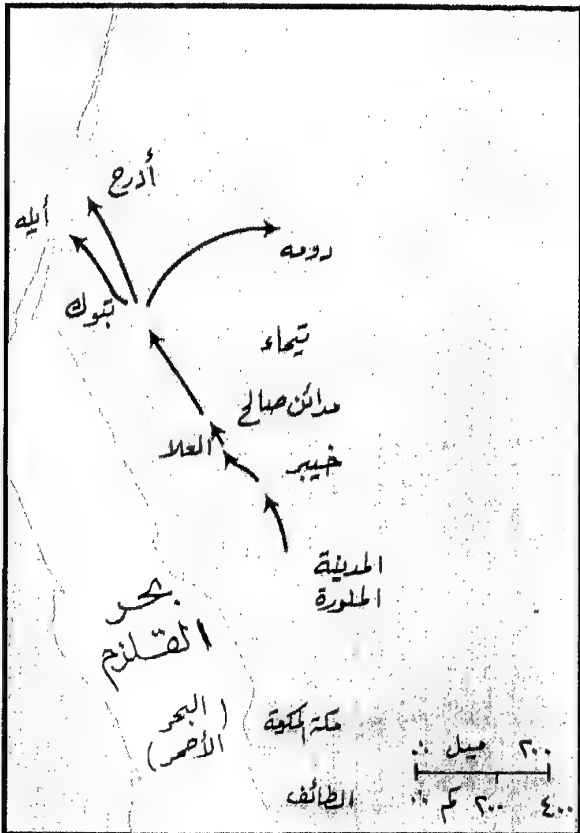 أذرح
أيله
دومه
تبوك
تيماء
مدائن صالح
العلا
خيبر
المدينة
المنورة
بحر
القلزم
(البحر
الأحمر)
مكة المكرمة
الطائف
٠٠ ميل ٢٠٠
٠٠ ٢٠٠ كم ٤٠٠